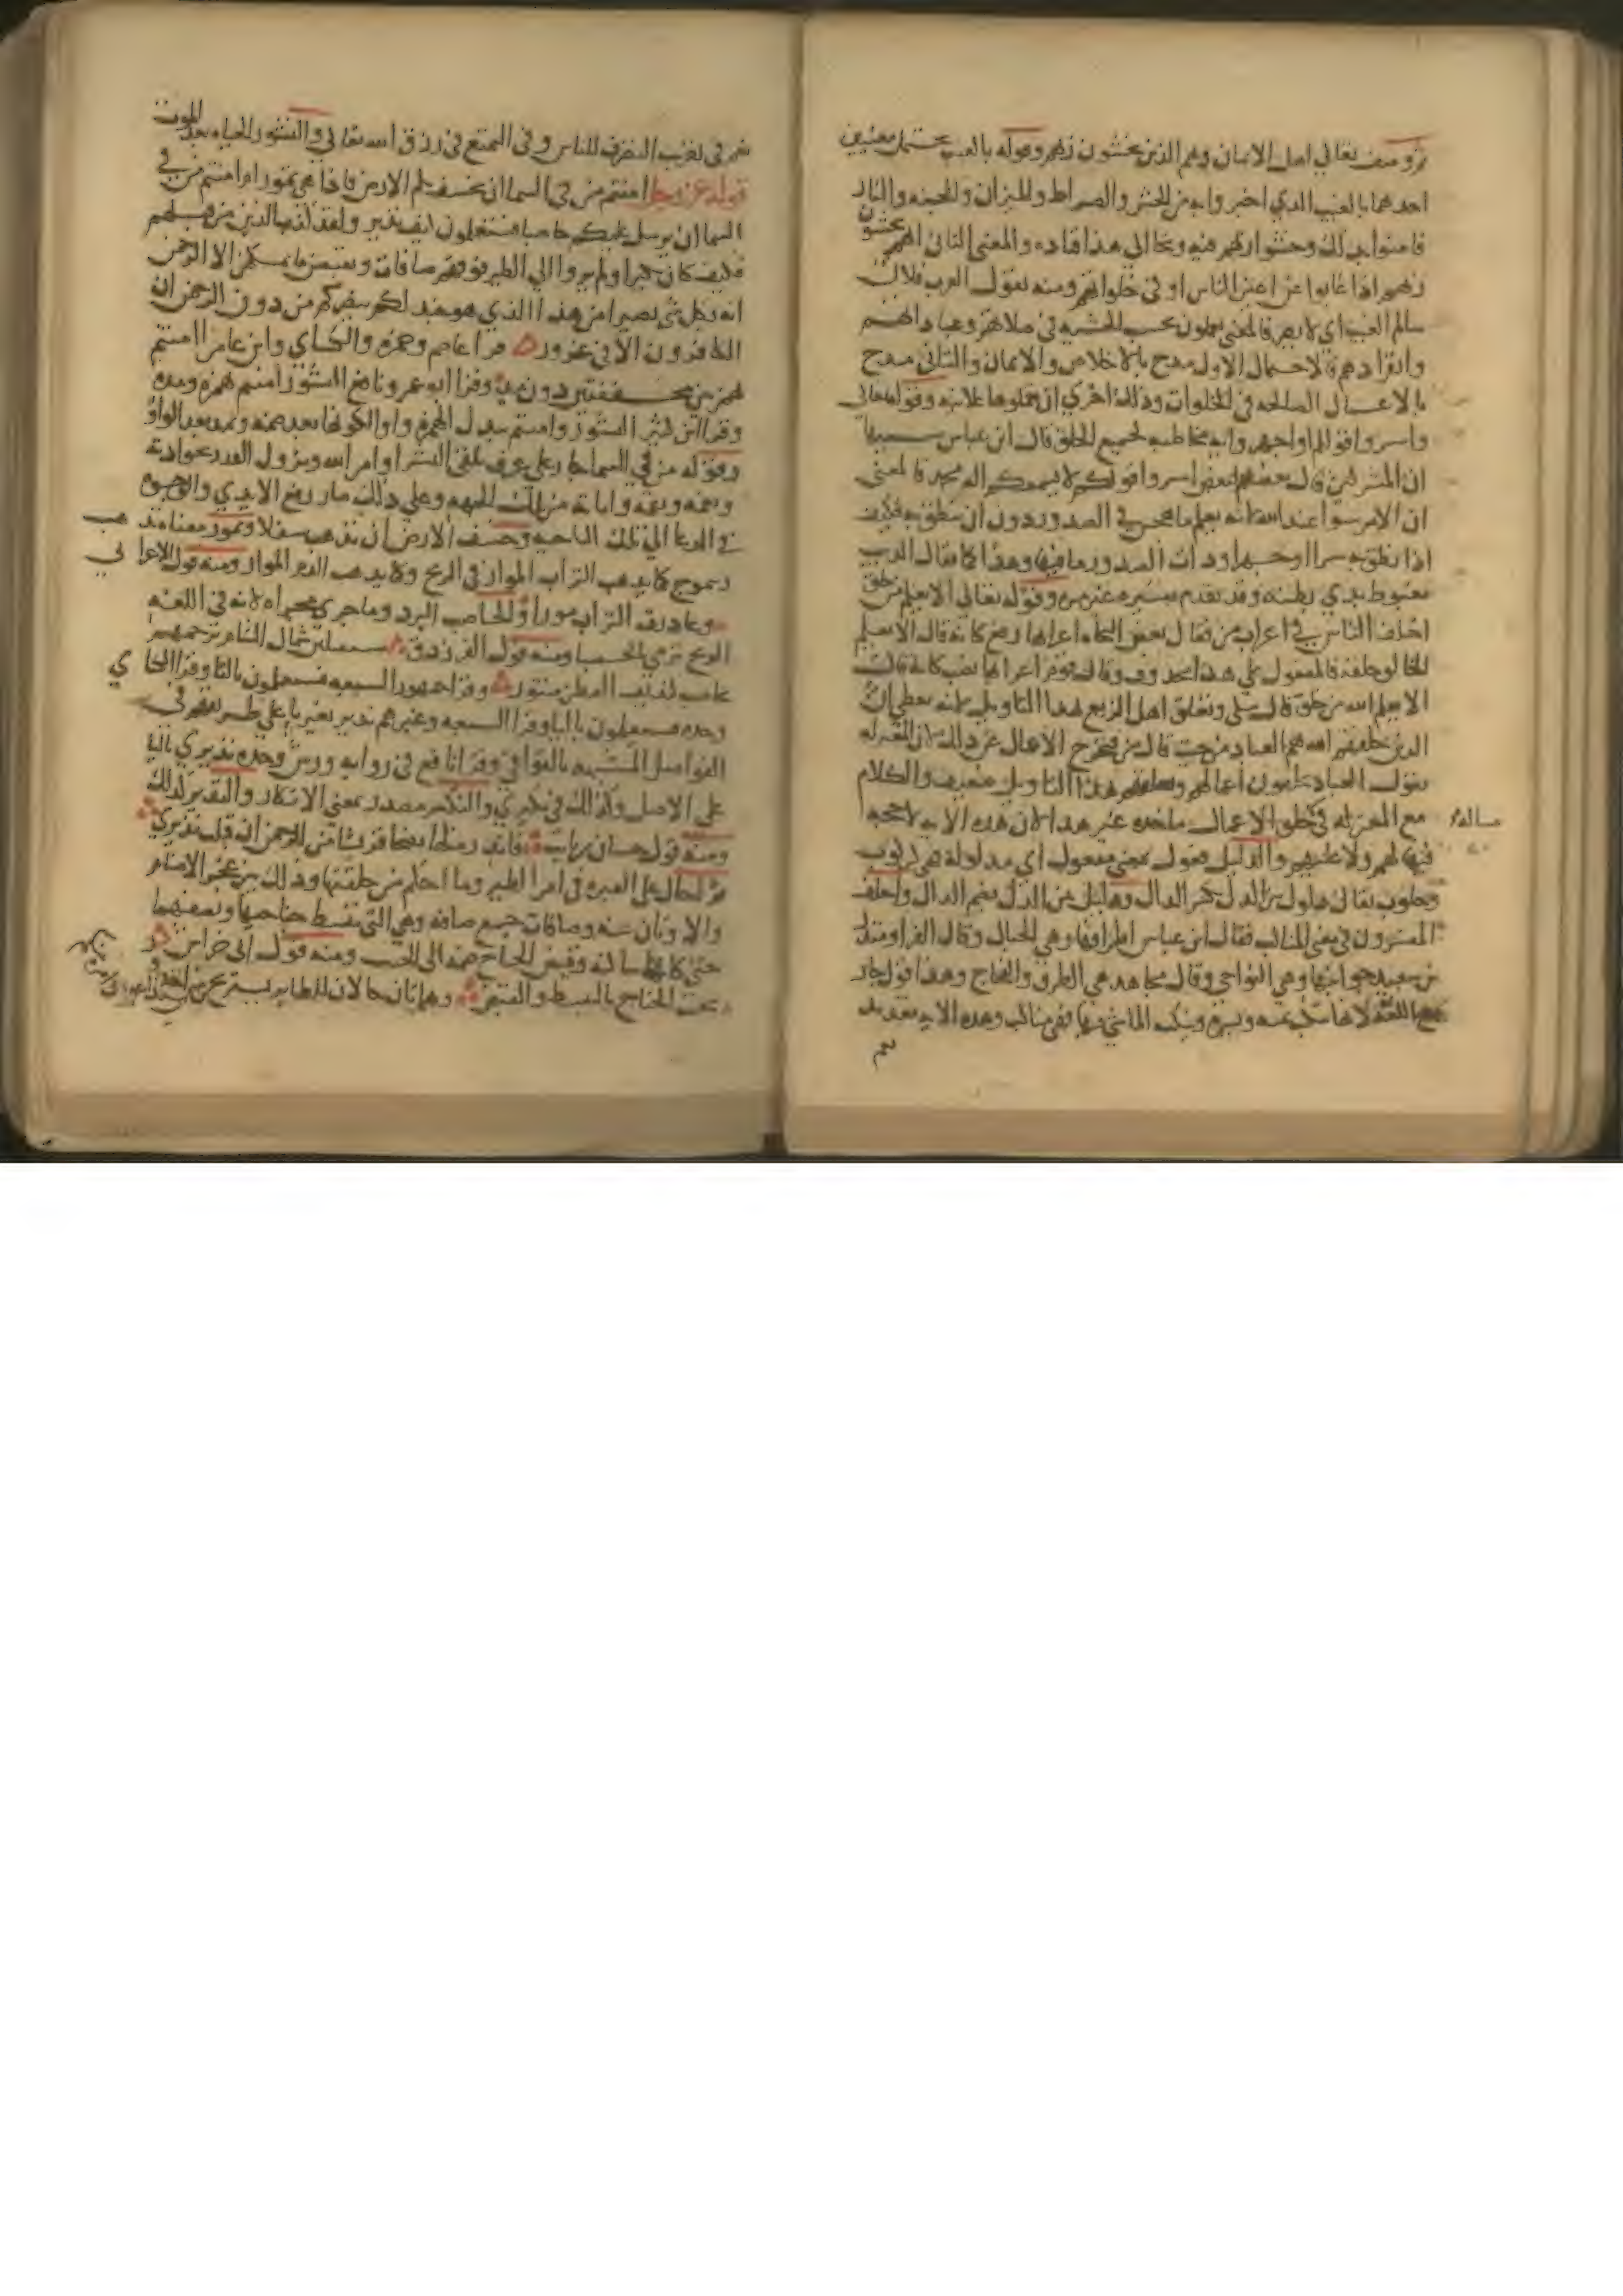 ثم وصف تعالى اهل الايمان وهم الذين يخشون ربهم وقوله بالغيب يحتمل معنيين
احدهما بالغيب الذي اخبروا به من الحشر والصراط والميزان والجنه والنار
فامنوا بذلك وخشوا ربهم فيه ونحا الى هذا قتاده والمعنى الثاني انهم يخشون
ربهم اذا غابوا عن اعين الناس اي في خلواتهم ومنه تقول العرب فلان
سالم الغيب اي لا يضر فالمعنى يعملون بحسب الخشيه في صلاتهم وعباداتهم
وانفرادهم فالاحتمال الاول مدح بالاخلاص والايمان والثاني مدح
بالاعمال الصالحه في الخلوات وذلك احرى ان يعملوها علانيه وقوله تعالى
واسروا قولكم او اجهروا به مخاطبه لجميع الخلق قال ابن عباس سببها
ان المشركين قال بعضهم لبعض اسروا قولكم لا يسمعكم اله محمد فالمعنى
ان الامر سوا عند الله انه يعلم ما هجس في الصدور دون ان ينطق به فكيف
اذا نطق به سرا او جهرا وذات الصدور ما فيها وهذا كما يقال الذيب
مغبوط بذي بطنه وقد تقدم تفسيره غير مره وقوله تعالى الا يعلم من خلق
اختلف الناس في اعراب من فقال بعض النحاه اعرابها رفع كانه قال الا يعلم
الخالق خلقه فالمفعول على هذا محذوف وقال قوم اعرابها نصب كانه قال
الا يعلم الله من خلق قال مكي وتعلق اهل الزيغ بهذا التاويل لانه يعطي ان
الذين خلقهم الله هم العباد من حيث قال من فتخرج الاعمال عن ذلك لان المعتزله
تقول العباد يخلقون اعمالهم وتعلقهم بهذا التاويل ضعيف والكلام
مع المعتزله في خلق الاعمال ماخذه غير هذا لان هذه الايه لا حجه
مساله
فيها لهم ولا عليهم والذليل فعول بمعنى مفعول اي مذلوله فهي كركوب
وحلوب يقال ذلول بين الذل بكسر الذال وذليل بين الذل بضم الذال واختلف
المفسرون في معنى المناكب فقال ابن عباس اطرافها وهي الجبال وقال الفرا ومنذر
بن سعيد جوانبها وهي النواحي وقال مجاهد هي الطرق والفجاج وهذا قول جار
مع اللغه لانها تنكب يمنه ويسره وينكب الماشي فيها فهي مناكب وهذه الايه تعديد
نعم
نعم في تقريب التصرف للناس وفي التمتع في رزق الله تعالى والنشور الحياه بعد الموت
قوله عز وجل امنتم من في السما ان يخسف بكم الارض فاذا هي تمور ام امنتم من في
السما ان يرسل عليكم حاصبا فستعلمون كيف نذير ولقد كذب الذين من قبلهم
فكيف كان نكير اولم يروا الى الطير فوقهم صافات ويقبضن ما يمسكهن الا الرحمن
انه بكل شي بصير امن هذا الذي هو جند لكم ينصركم من دون الرحمن ان
الكافرون الا في غرور قرا عاصم وحمزه والكساي وابن عامر اامنتم
بهمزتين مخففتين دون مد وقرا ابو عمرو ونافع النشور امنتم بهمزه ومده
وقرا ابن كثير النشور وامنتم ببدل الهمزه واوا لكونها بعد ضمه وبمد بعد الواو
وقوله من في السما جار على عرف تلقي البشر اوامر الله ونزول القدر بحوادثه
ونعمه ونقمه واياته من تلك الجهه وعلى ذلك صار رفع الايدي والوجوه
في الدعا الى تلك الناحيه وخسف الارض ان تذهب سفلا وتمور معناه تذهب
وتموج كما يذهب التراب الموار في الريح وكما يذهب الدم الموار ومنه قول الاعرابي
وغادرت التراب مورا والحاصب البرد وما جرى مجراه لانه في اللغه
الريح ترمي بالحصبا ومنه قول الفرزدق مستقبلين شمال الشام تضربهم
بحاصب كنديف القطن منثور وقرا جمهور السبعه فستعلمون بالتا وقرا الكساي
وحده فسيعلمون باليا وقرا السبعه وغيرهم نذير بغير يا على طريقتهم في
الفواصل المشبهه بالقوافي وقرا نافع في روايه ورش وحده نذيري باليا
على الاصل وكذلك في نكيري والنكير مصدر بمعنى الانكار والنذير كذلك
ومنه قول حسان بن ثابت فانذر مثلها نصحا قريشا من الرحمن ان قبلت نذيري
ثم احال على العبره في امر الطير وما احكم من خلقتها وذلك بين عجز الاصنام
والاوثان عنه وصافات جمع صافه وهي التي تبسط جناحيها وتصفهما
حتى كانها ساكنه وقبض الجناح ضمه الى الجنب ومنه قول ابي خراش
يحث الجناح بالتبسط والقبض وهاتان حالان للطاير يستريح من